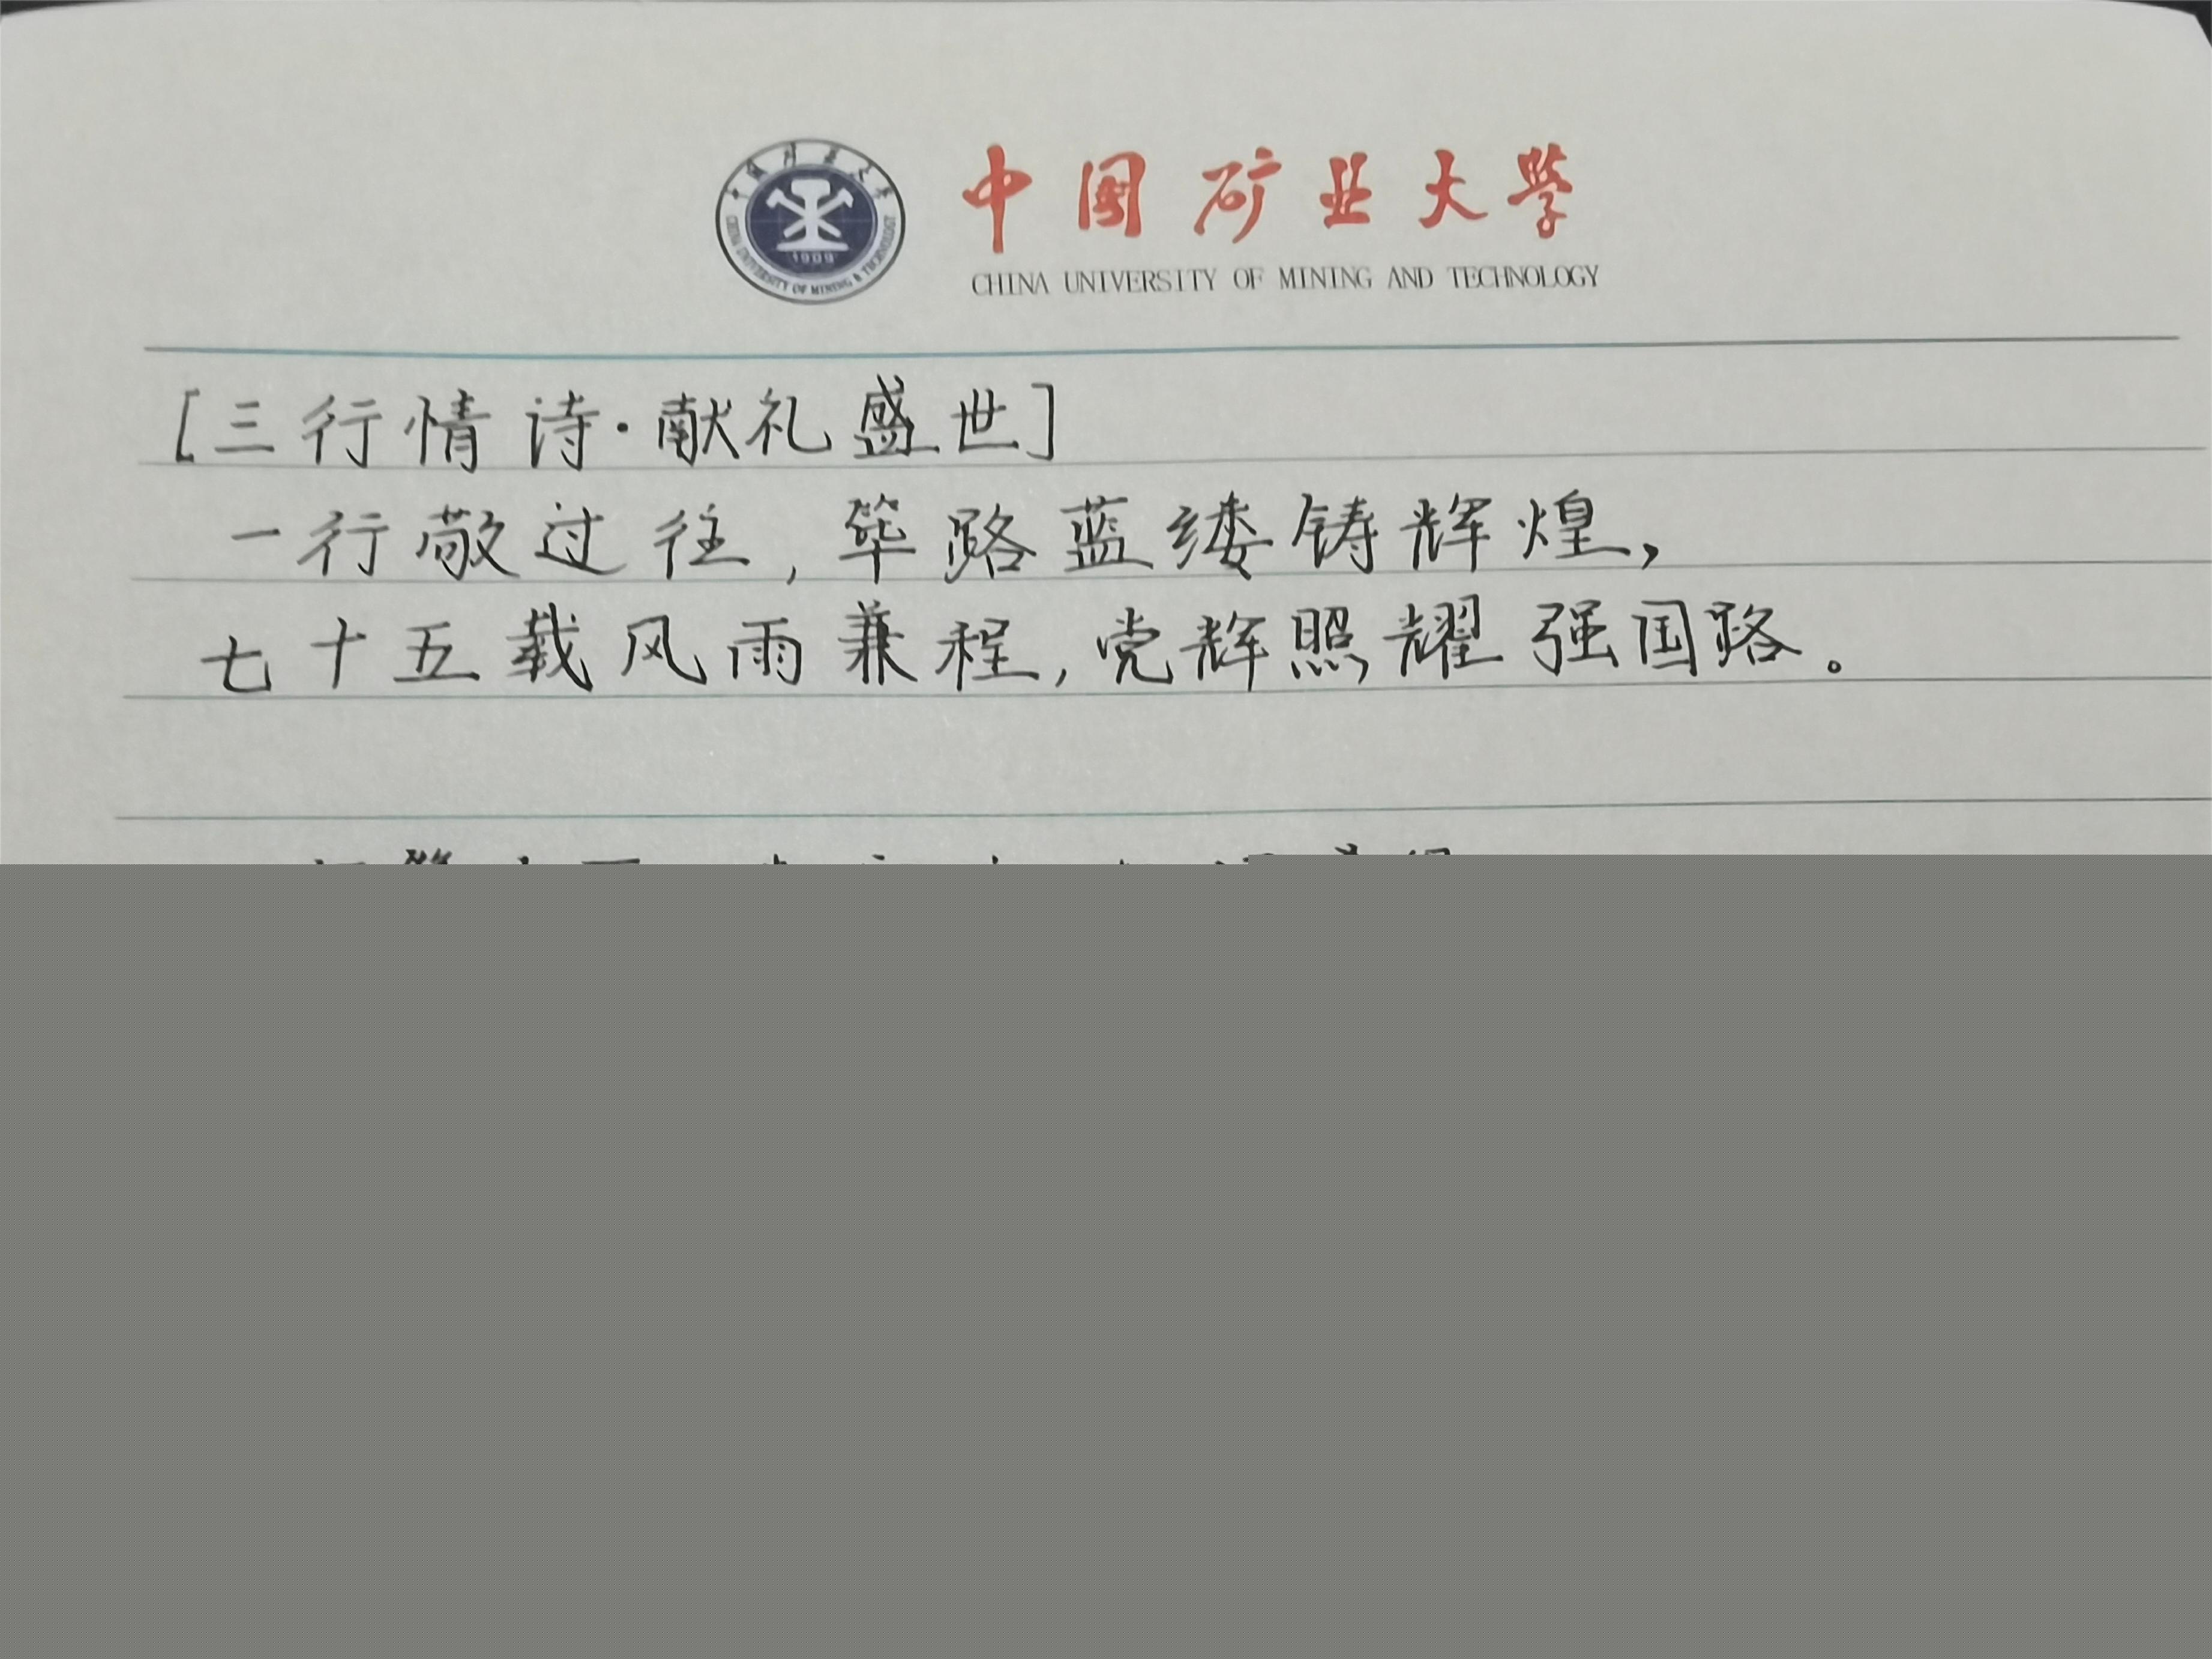 中国矿业大学
CHINA UNIVERSITY OF MINING & TECHNOLOGY
1909
中国矿业大学
CHINA UNIVERSITY OF MINING AND TECHNOLOGY
[三行情诗·献礼盛世]
一行敬过往,筚路蓝缕铸辉煌,
七十五载风雨兼程,党辉照耀强国路。